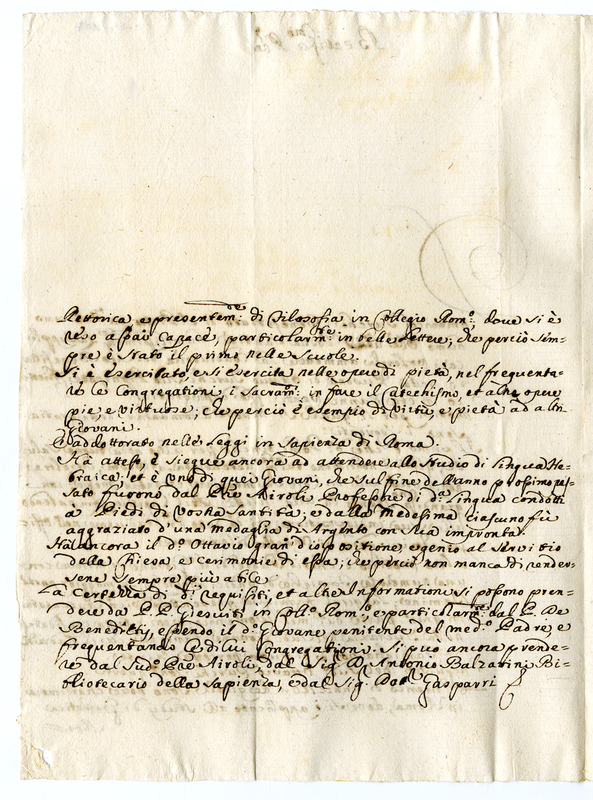 Rettorica e presentem.te di Filosofia in Collegio Rom.o dove si è
reso assai capace, particolarm.te in belle Lettere; che perciò sem-
pre è stato il primo nelle Scuole.
Si è esercitato, e si esercita nelle opere di pietà, nel frequenta-
re le Congregationi, i Sacram.ti in fare il Catechismo, et altre opere
pie, e virtuose; che perciò è esempio di virtù, e pietà ad altri
Giovani.
È addottorato nelle Leggi in Sapienza di Roma.
Ha atteso, e siegue ancora ad attendere allo studio di Lingua He-
braica; et è uno di quei Giovani, che sul fine dell'anno prossimo pas-
sato furono dal P.re Miroli Professore di d.a Lingua condotti
a Piedi di Vostra Santità; e dalla medesima ciascuno fù
aggraziato d'una medaglia di Argento con sua impronta.
Ha ancora il d.o Ottavio gran disposizione, e genio al Servitio
della Chiesa, e Cerimonie di essa; che perciò non manca di render-
sene sempre più abile.
La Certezza di d.i requisiti, et altre Informationi si possono pren-
dere da P.P. Giesuiti in Coll.o Rom.o, e particolarm.te dal P. De
Benedictis, essendo il d.o Giovane penitente del med.o Padre, e
frequentando le di lui Congregationi. Si può ancora prende-
re dal Sud.o P.re Miroli, dal Sig.r D. Antonio Balzarini Bi-
bliotecario della Sapienza, e dal Sig.r Gasparri